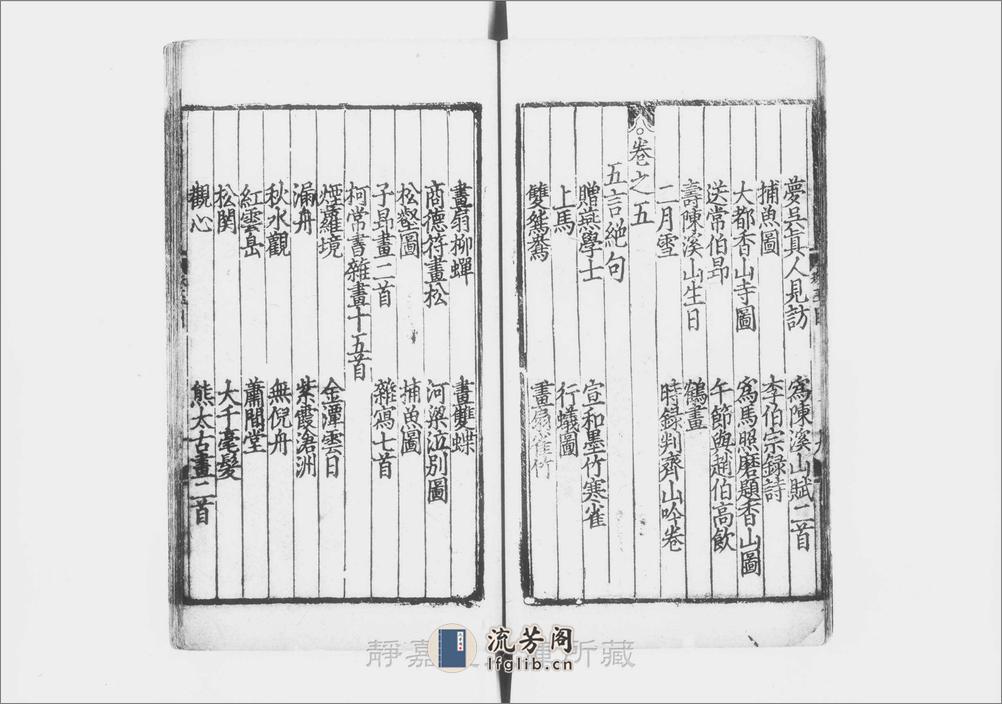 夢吳真人見訪　爲陳溪山賦二首
捕魚圖　李伯宗錄詩
大都香山寺圖　爲馬照磨題香山圖
送常伯昂　午節與趙伯高飲
壽陳溪山生日　鶴畫
二月雪　時錄判齊山吟卷
卷之五
五言絕句
贈燕學士　宣和墨竹寒雀
上馬　行蟻圖
雙鴛鴦　畫扇雀竹
畫扇柳蟬　畫雙蝶
商德符畫松　河梁泣別圖
松壑圖　捕魚圖
子昂畫二首　雜寫七首
柯常書雜畫十五首
煙蘿境　金潭雲日
漏舟　紫霞滄洲
秋水觀　無倪舟
紅雲島　蕭閒堂
松関　大千毫髮
觀心　熊太古畫二首
靜嘉 所藏
流芳阁
lfglib.cn